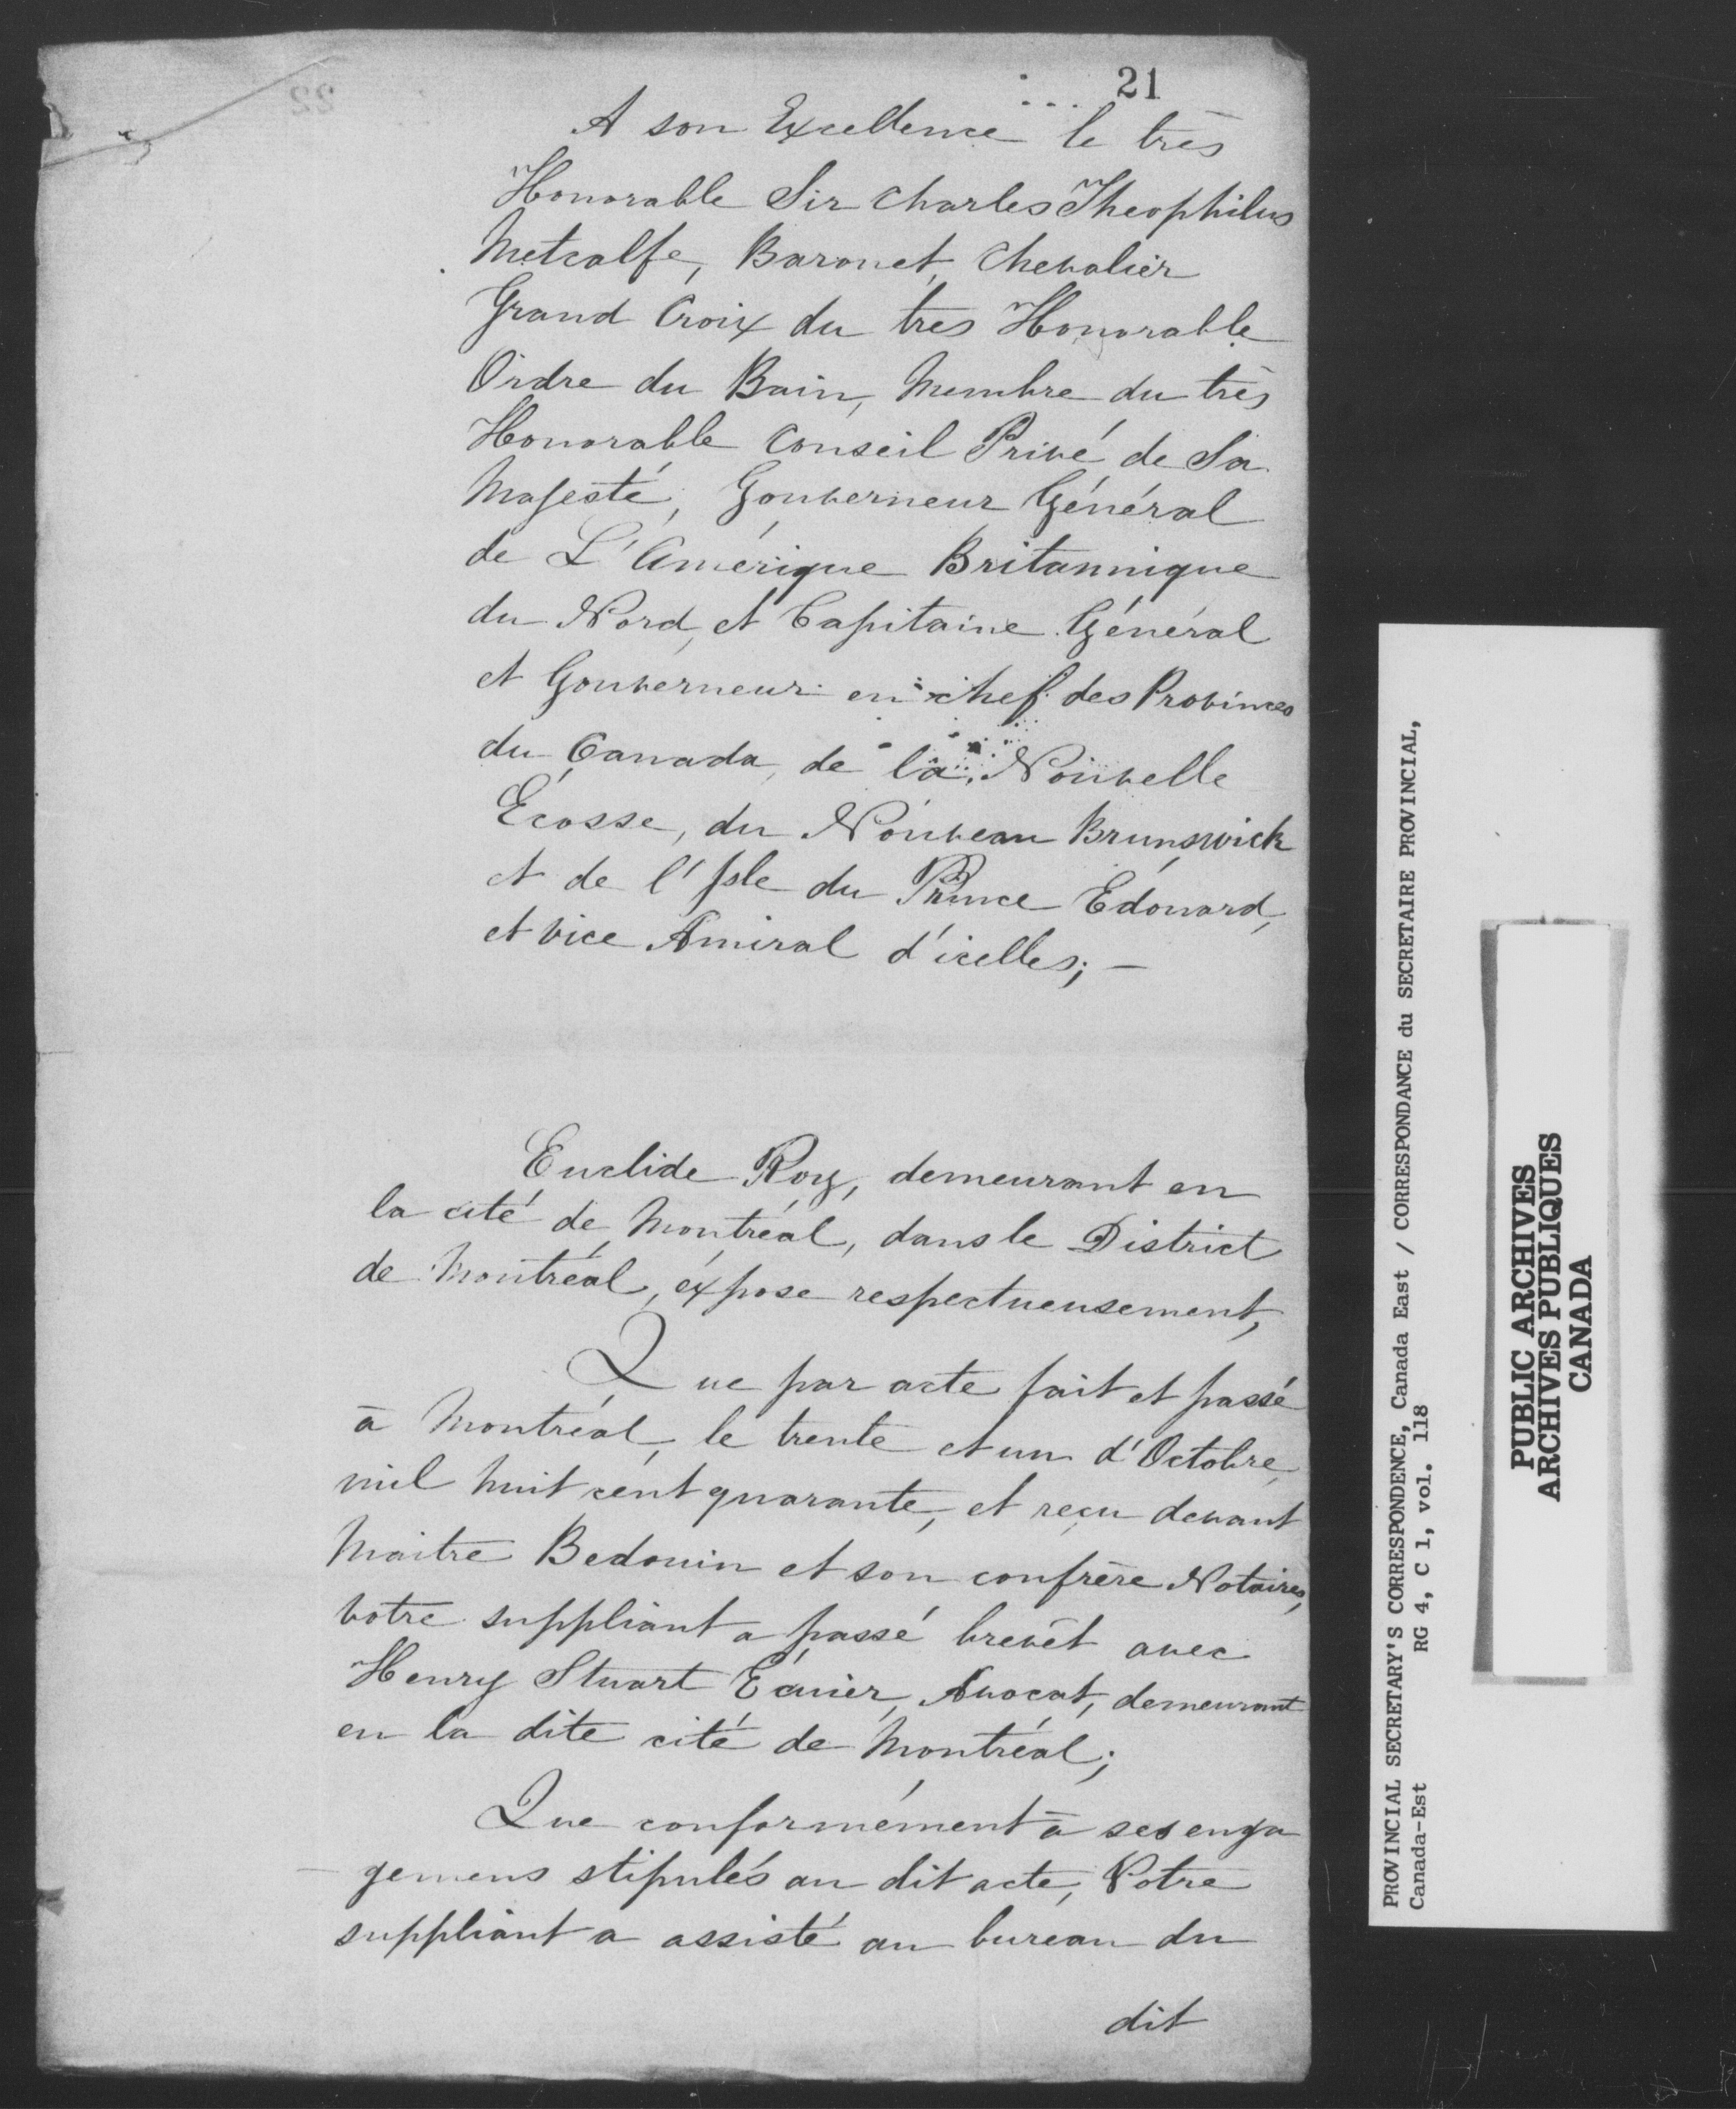 21
A son Excellence le très
Honorable Sir Charles Theophilus
Metcalfe, Baronet, Chevalier
Grand Croix du tres Honorable
Ordre du Bain, Membre du très
Honorable Conseil Privé de Sa
Majesté, Gouverneur Général
de L'Amérique Britannique
du Nord, et Capitaine Général
et Gouverneur en chef des Provinces
du Canada, de la Nouvelle
Écosse, du Nouveau Brunswick
et de l'Isle du Prince Édouard,
et vice Amiral d'icelles; —
Euclide Roy, demeurant en
la cité de Montréal, dans le District
de Montréal, expose respectueusement,
Que par acte fait et passé
à Montréal, le trente et un d'Octobre
mil huit cent quarante, et reçu devant
Maitre Bedouin et son confrère Notaires,
votre suppliant a passé brevêt avec
Henry Stuart Écuier, Avocat, demeurant
en la dite cité de Montréal;
Que conformément à ses enga
gemens stipulés au dit acte, Votre
suppliant a assisté au bureau du
dit
PROVINCIAL SECRETARY'S CORRESPONDENCE, Canada East / CORRESPONDANCE du SECRETAIRE PROVINCIAL,
Canada-Est RG 4, C 1, vol. 118
PUBLIC ARCHIVES
ARCHIVES PUBLIQUES
CANADA
22